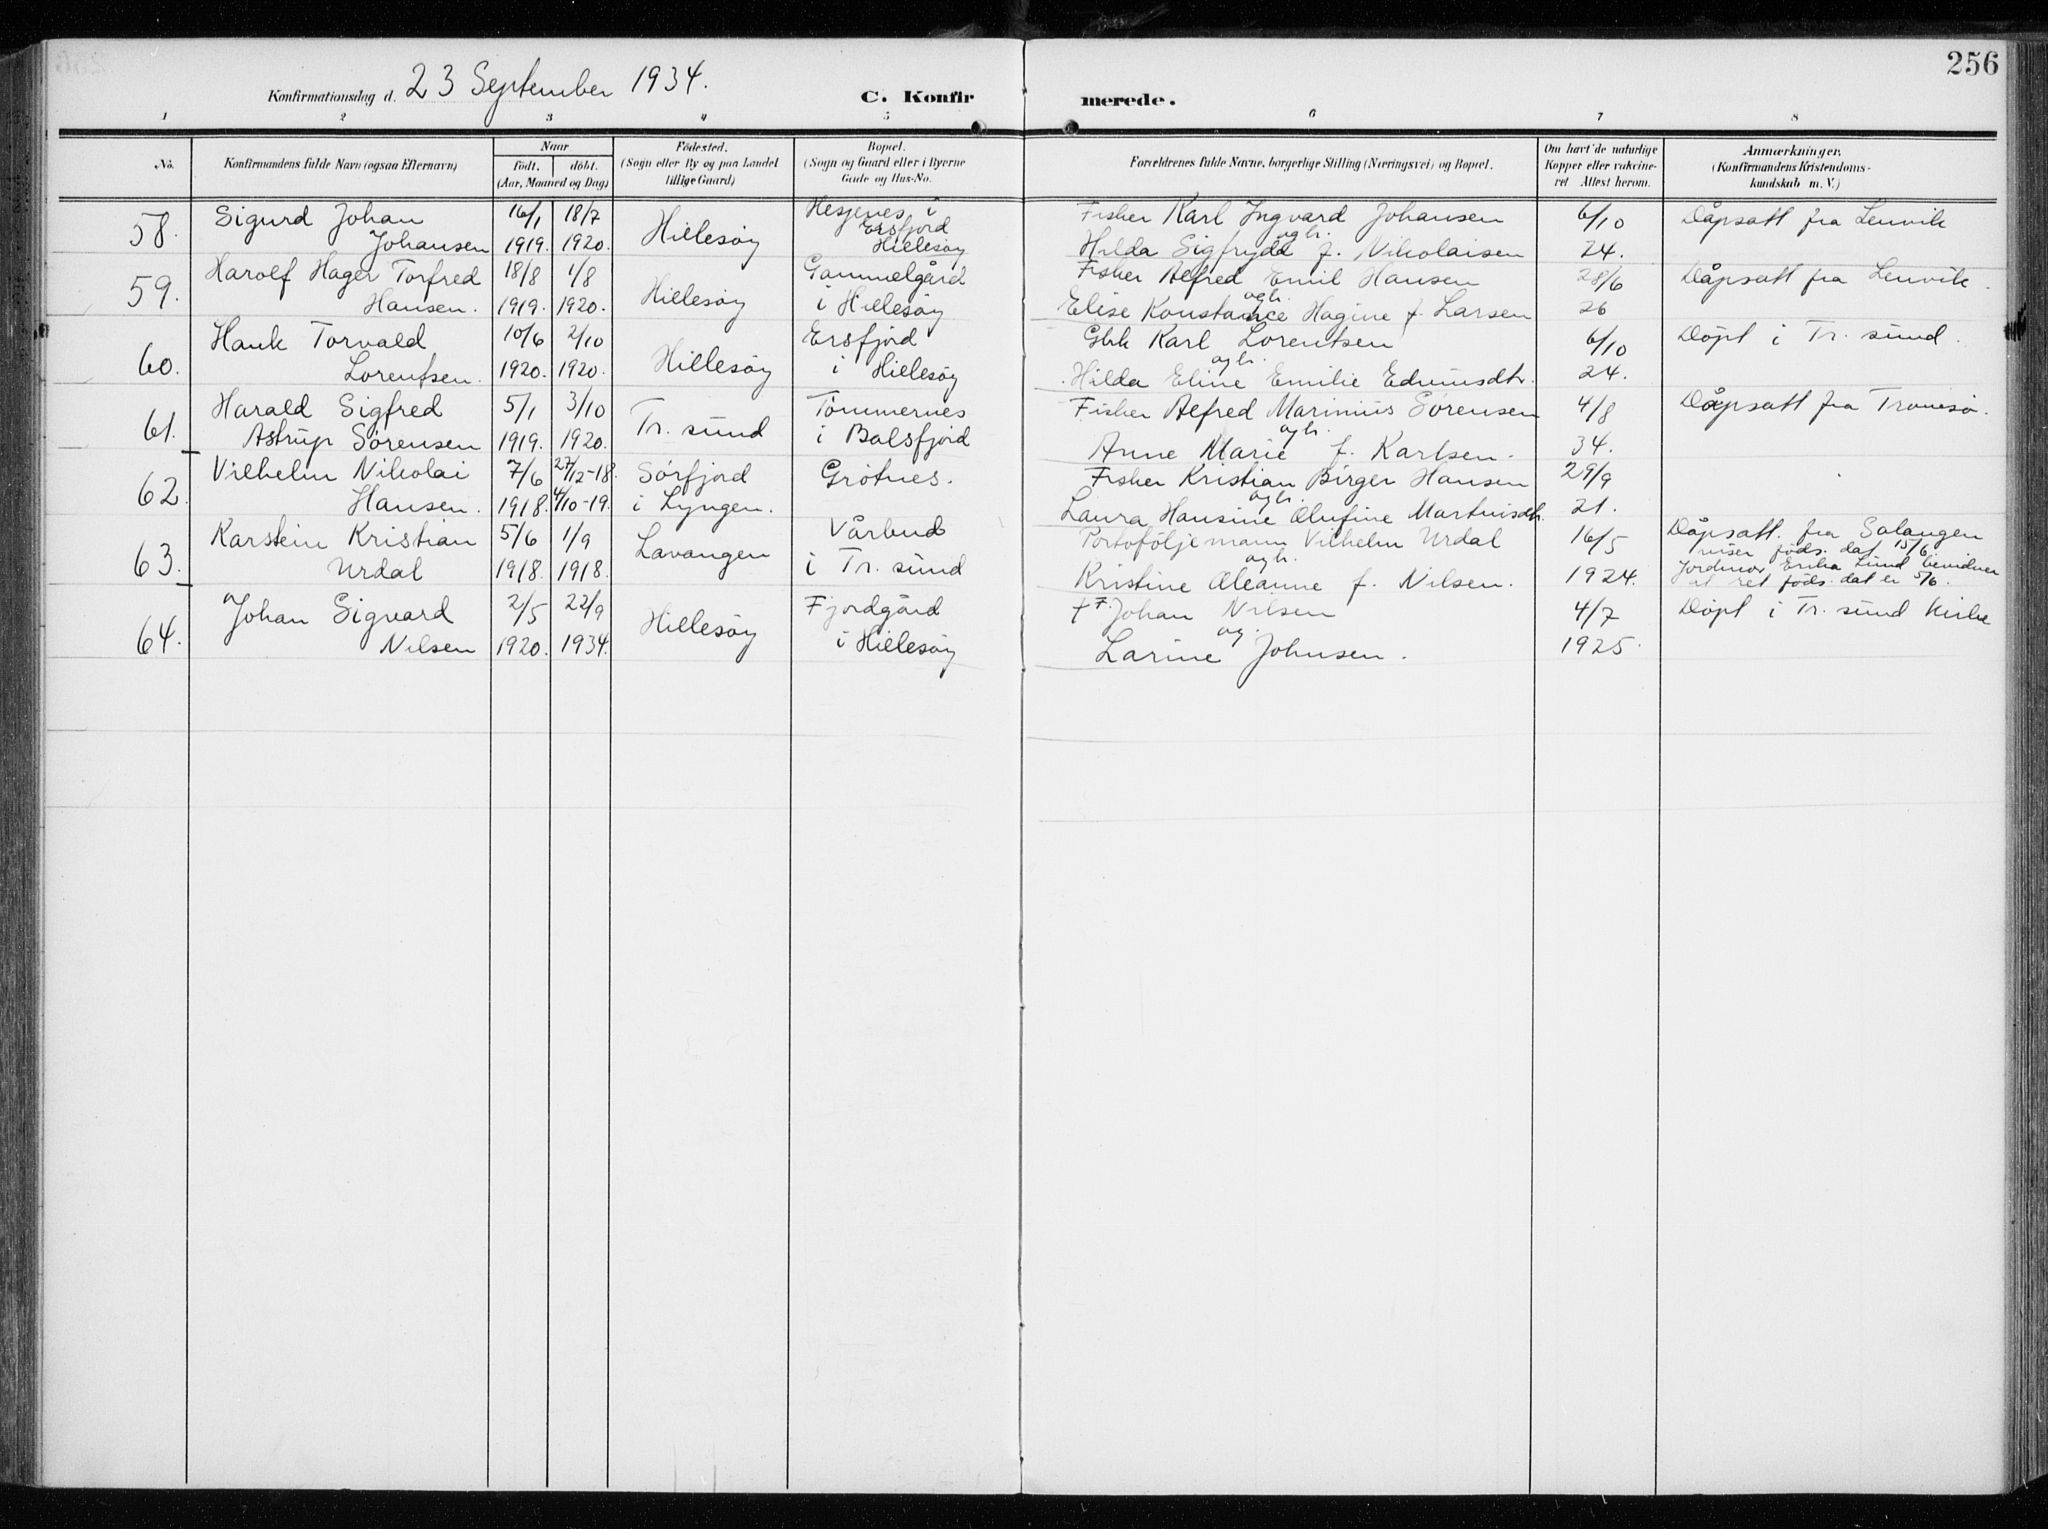 256
Konfirmationsdag d. 23 September 1934.
C. Konfirmerede.
1 2 3 4 5 6 7 8
No.
Konfirmandens fulde Navn (ogsaa Efternavn)
Naar
födt. döbt.
(Aar, Maaned og Dag)
Födested.
(Sogn eller By og paa Landet
tillige Gaard)
Bopæl.
(Sogn og Gaard eller i Byerne
Gade og Hus-No.
Forældrenes fulde Navne, borgerlige Stilling (Næringsvei) og Bopæl.
Om havt de naturlige
Kopper eller vakcine-
ret Attest herom.
Anmærkninger,
(Konfirmandens Kristendoms-
kundskab m. V.)
58. Sigurd Johan 16/1 18/7 Hillesøy Hesjenes i Fisker Karl Ingvard Johansen 6/10 Dåpsatt fra Lenvik
Ersfjord ogh.
Johansen 1919. 1920. Hillesøy Hilda Sigfrydd f. Nikolaisen 24.
59. Harolf Hager Torfred 18/8 1/8 Hillesøy Gammelgård Fisker Alfred Emil Hansen 28/6 Dåpsatt fra Lenvik.
ogh.
Hansen. 1919. 1920. i Hillesøy Elise Konstance Hagine f. Larsen 26
60. Hauk Torvald 10/6 2/10 Hillesøy Ersfjord Gbk Karl Lorentsen 6/10 Döpt i Tr. sund.
ogh.
Lorentsen. 1920. 1920. i Hillesøy Hilda Eline Emilie Edvinsdtr. 24.
61. Harald Sigfred 5/1 3/10 Tr. sund Tömmernes Fisker Alfred Marinius Sörensen 4/8 Dåpsatt fra Tromsö.
ogh.
Astrup Sörensen 1919. 1920. i Balsfjord Anne Marie f. Karlsen. 34.
62. Vilhelm Nikolai 7/6 27/12-18. Sörfjord Grötnes. Fisker Kristian Birger Hansen 29/9
ogh.
Hansen. 1918. 4/10-19. i Lyngen. Laura Hansine Olufine Martinsdtr. 21.
63. Karstein Kristian 5/6 1/9 Lavangen Vårbud Portoföljemann Vilhelm Urdal 16/5 Dåpsatt. fra Salangen
ogh. viser föds. dat 15/6.
Urdal 1918. 1918. i Tr. sund Kristine Oleanne f. Nilsen. 1924. Jordmor Erika Lund bevidner
at ret föds. dat er 5/6.
64. Johan Sigvard 2/5 22/9 Hillesøy Fjordgård + F. Johan Nilsen 4/7 Döpt i Tr. sund kirke
og.
Nilsen 1920. 1934. i Hillesøy Larine Johnsen. 1925.